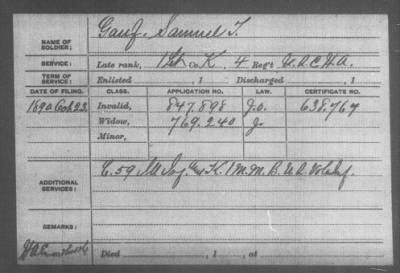 NAME OF SOLDIER: Gauf, Samuel T.
SERVICE: Late rank, 1st Co. K, 4 Reg't U.S.C.H.A.
TERM OF SERVICE: Enlisted , 1 Discharged , 1
DATE OF FILING. CLASS. APPLICATION NO. LAW. CERTIFICATE NO.
1890 Oct 23 Invalid, 847.898 638.767
Widow, 769.240
Minor,
ADDITIONAL SERVICES: C. 59 Ills Inf. K. 1 M.M.B. U.S. Vols Inf.
REMARKS:
Died , 1 , at